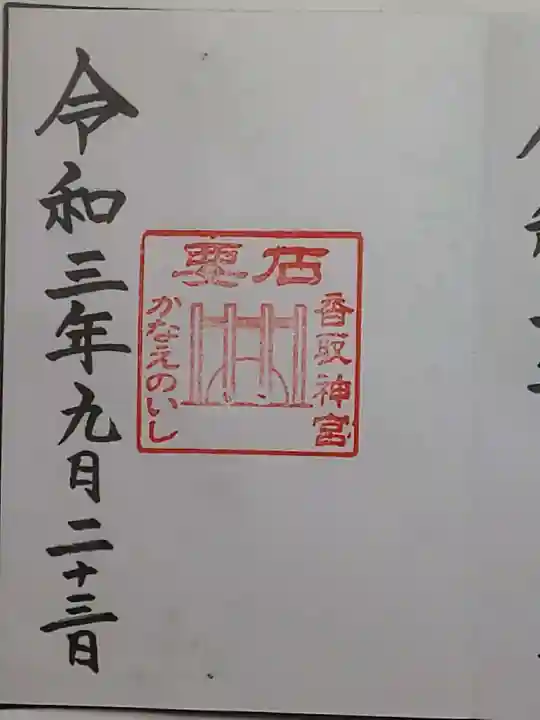 要石
香取神宮
かなえのいし
令和三年九月二十三日